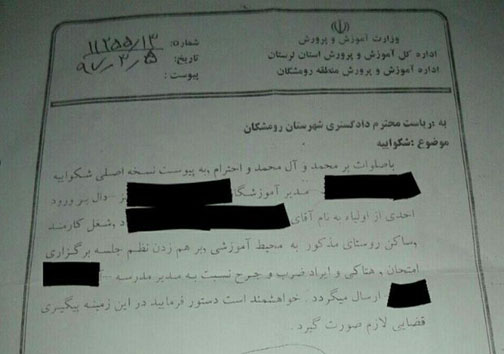 وزارت آموزش و پرورش
اداره کل آموزش و پرورش استان لرستان
اداره آموزش و پرورش منطقه رومشکان
شماره: ۱۱۲۵۵/۱۳
تاریخ: ۹۷,۳,۵
پیوست:
به :ریاست محترم دادگستری شهرستان رومشکان
موضوع :شکواییه
باصلوات بر محمد و آل محمد و احترام ,به پیوست نسخه اصلی شکواییه
مدیر آموزشگا دال بر ورود
احدی از اولیاء به نام آقای د ,شغل کارمند
,ساکن روستای مذکور به محیط آموزشی ,بر هم زدن نظم جلسه برگزاری
امتحان , هتاکی و ایراد ضرب و جرح نسبت به مدیر مدرسه
ارسال میگردد . خواهشمند است دستور فرمایید در این زمینه پیگیری
قضایی لازم صورت گیرد .